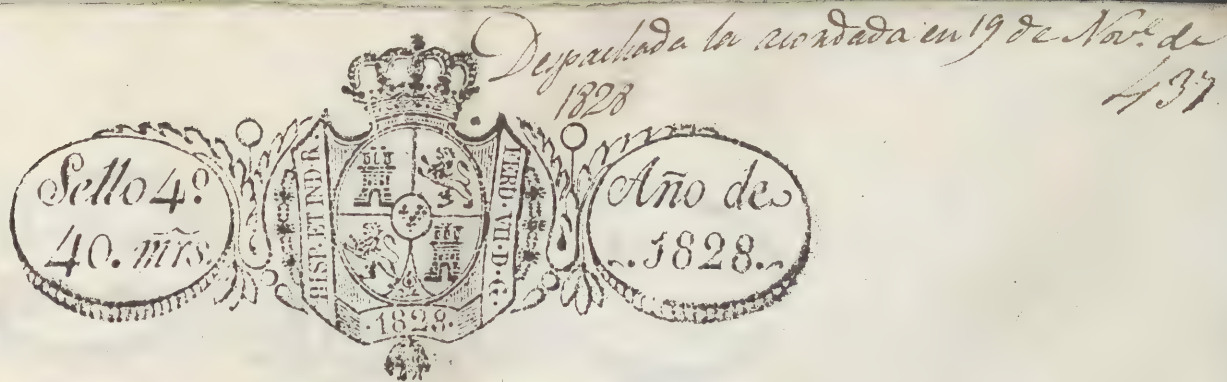 Despachada la acordada en 19 de Nov.e de
1828
437
Sello 4.º
40. mrs.
HISP. ET IND. R.
FERD. VII. D. G.
·1828·
Año de
1828.